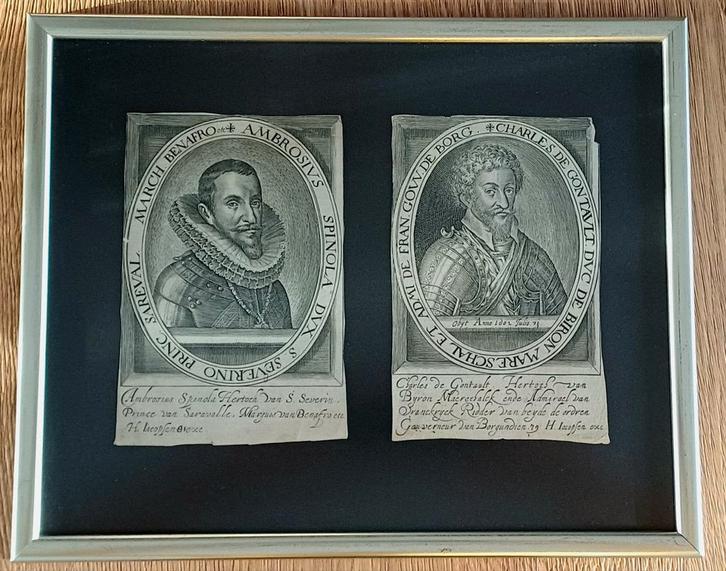 ✠ AMBROSIVS SPINOLA DVX S SEVERINO PRINC SAREVAL MARCH BENAFRO etc
Ambrosius Spinola Hertoch van S. Severin.
Prince van Saravalle. Marquis van Benafro etc
H Iacopsen exc
✠ CHARLES DE GONTAVLT DVC DE BIRON MARESCHAL ET ADMI DE FRAN GOVV DE BORG.
Obyt Anno 1602 Julii 31
Charles de Gontault Hertogh van
Byron Maerschalck ende Admirael van
Vranckryck Ridder van beyde de ordren
Gouverneur van Borgundien 39 H Iacopsen exc